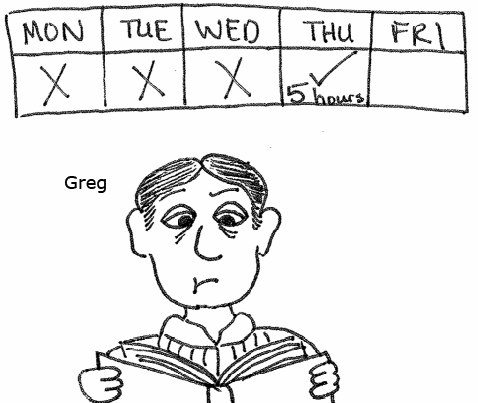 MON TUE WED THU FRI
X X X ✓
5 hours
Greg